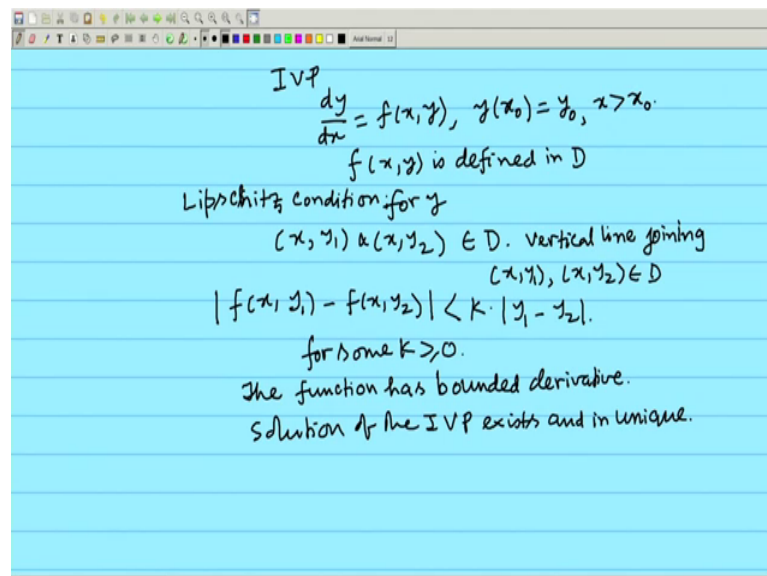 IVP
dy/dx = f(x,y), y(x₀) = y₀, x > x₀.
f(x,y) is defined in D
Lipschitz condition for y
(x, y₁) & (x, y₂) ∈ D. vertical line joining
(x,y₁), (x,y₂) ∈ D
|f(x, y₁) - f(x, y₂)| < K. |y₁ - y₂|.
for some K ≥ 0.
The function has bounded derivative.
Solution of the IVP exists and in unique.